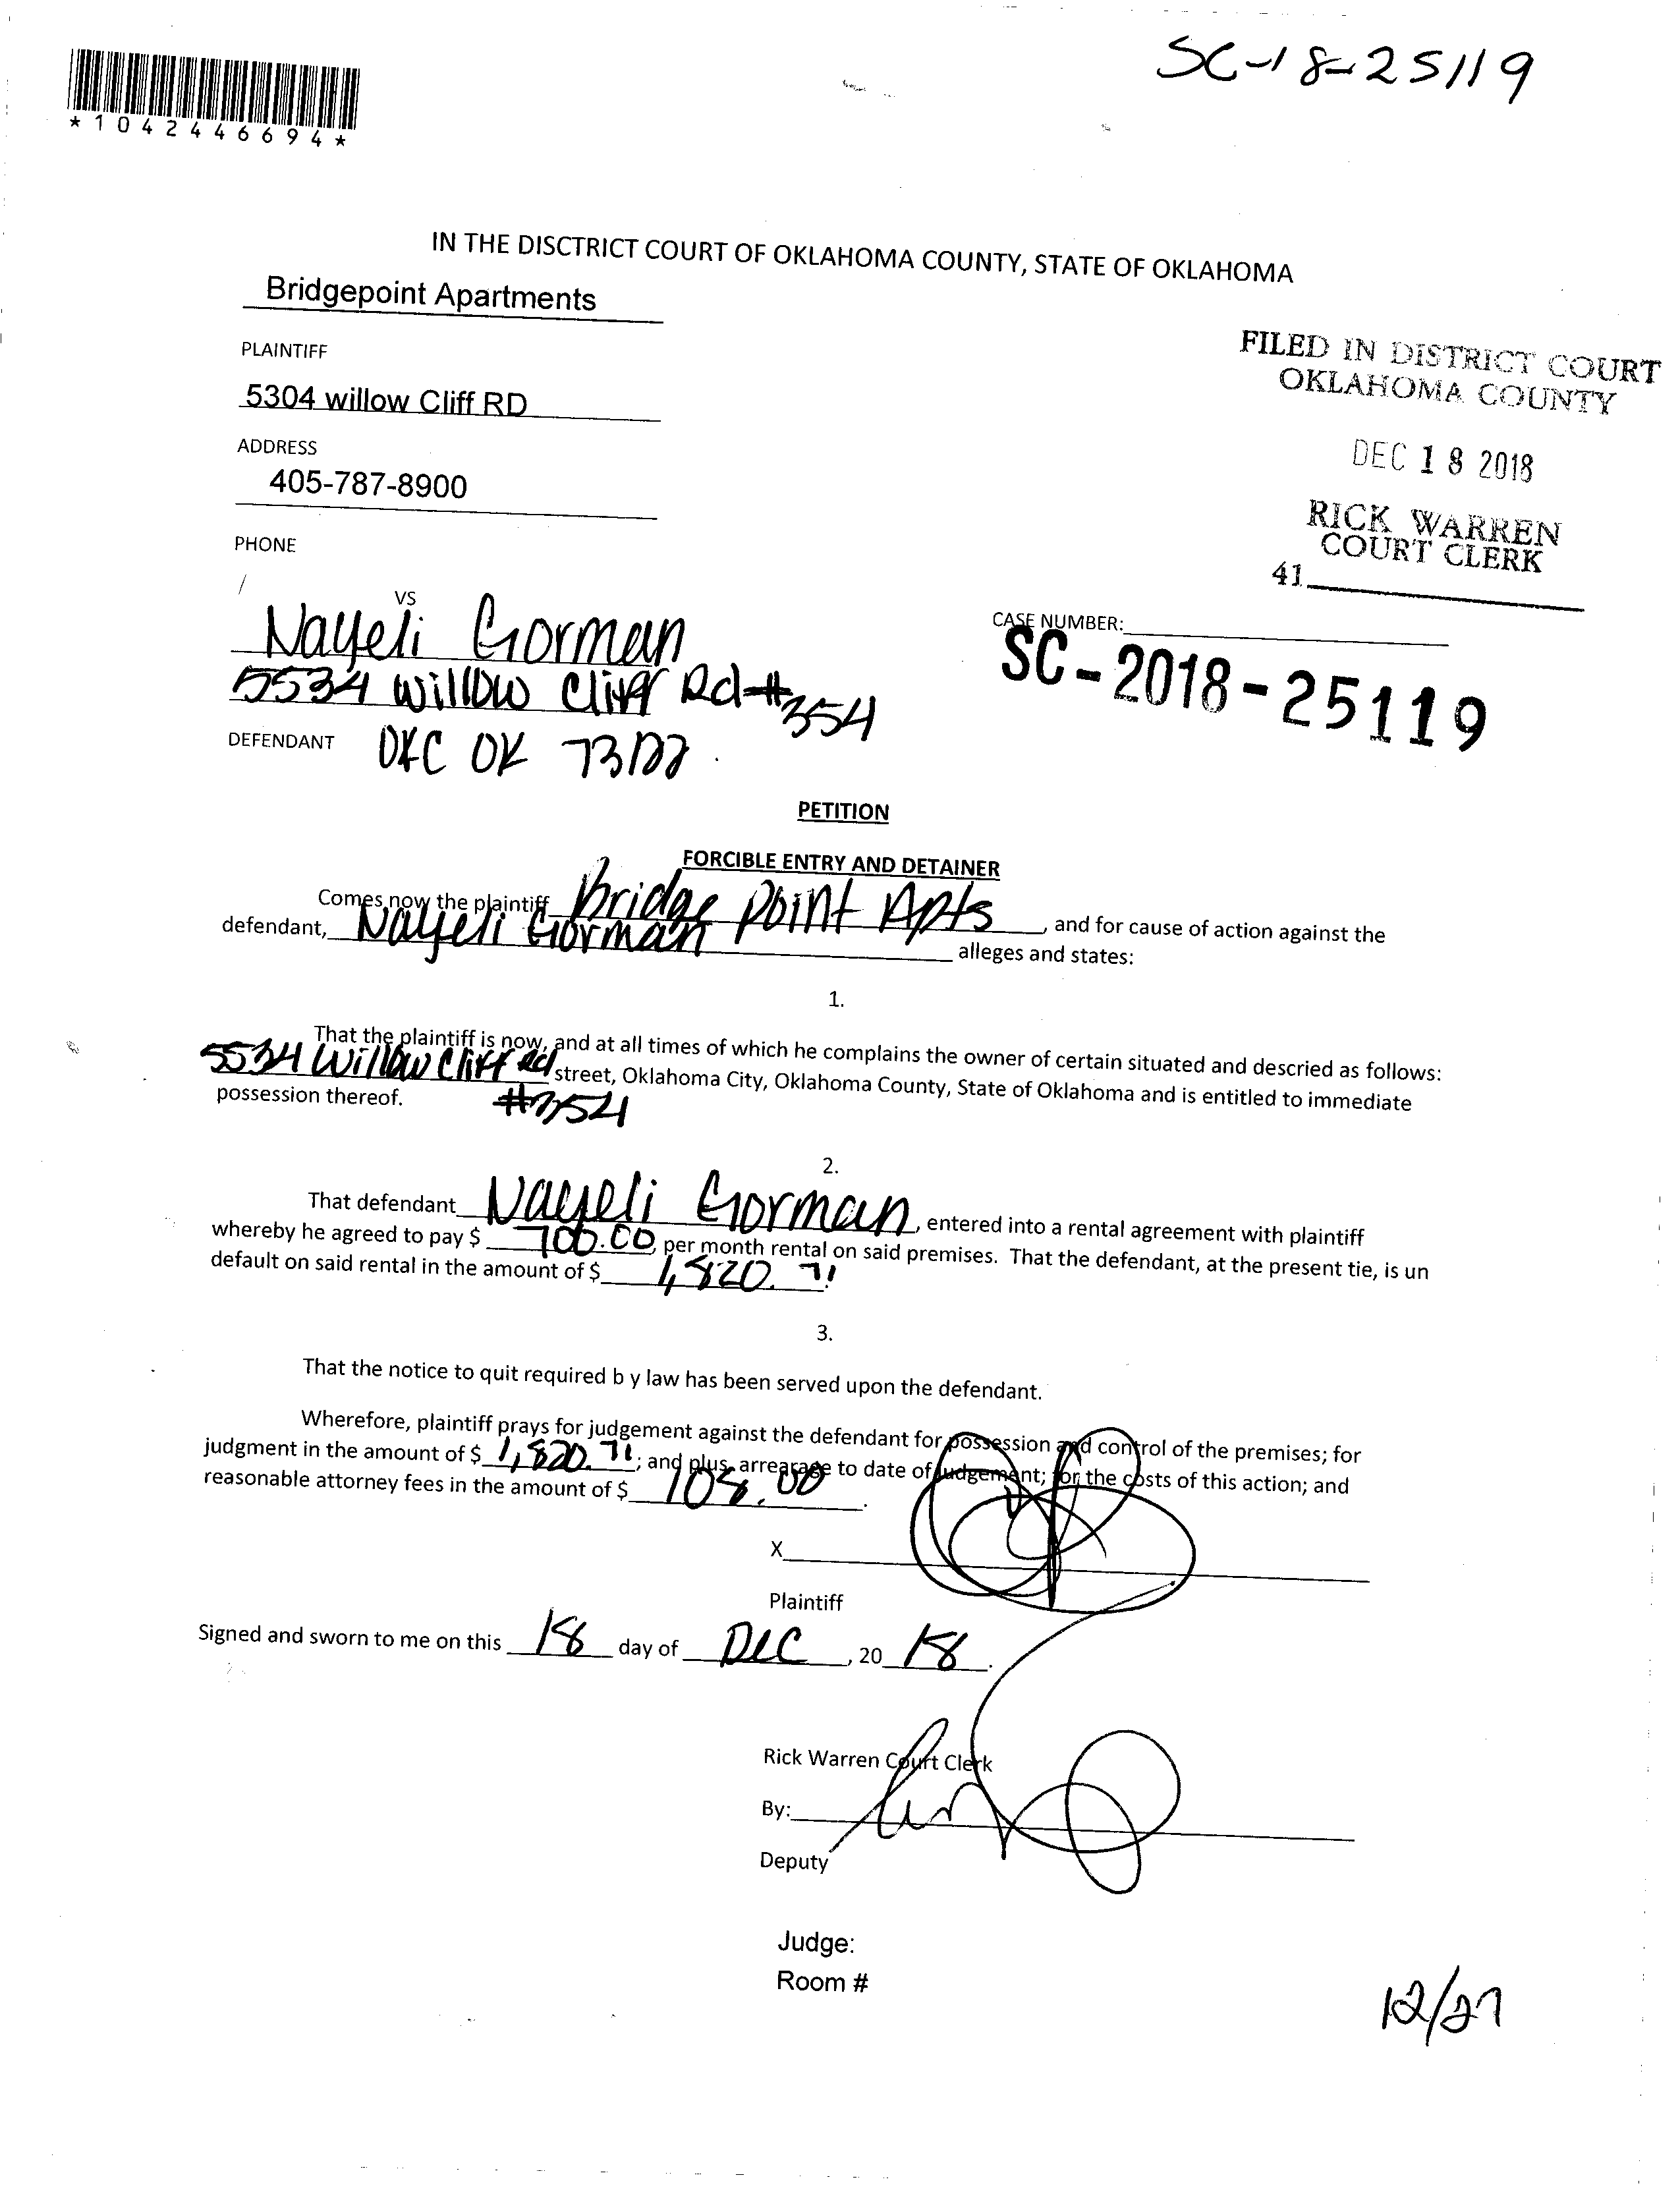 SC-18-25119
*1042446694*
IN THE DISCTRICT COURT OF OKLAHOMA COUNTY, STATE OF OKLAHOMA
Bridgepoint Apartments
PLAINTIFF
5304 willow Cliff RD
ADDRESS
405-787-8900
PHONE
FILED IN DISTRICT COURT
OKLAHOMA COUNTY
DEC 18 2018
RICK WARREN
COURT CLERK
41
VS
Nayeli Gorman
5534 Willow Cliff Rd #354
DEFENDANT OKC OK 73122
CASE NUMBER:
SC-2018-25119
PETITION
FORCIBLE ENTRY AND DETAINER
Comes now the plaintiff Bridge Point Apts, and for cause of action against the
defendant, Nayeli Gorman alleges and states:
1.
That the plaintiff is now, and at all times of which he complains the owner of certain situated and descried as follows:
5534 Willow Cliff Rd street, Oklahoma City, Oklahoma County, State of Oklahoma and is entitled to immediate
possession thereof. #354
2.
That defendant Nayeli Gorman, entered into a rental agreement with plaintiff
whereby he agreed to pay $ 700.00, per month rental on said premises. That the defendant, at the present tie, is un
default on said rental in the amount of $ 1,820.71
3.
That the notice to quit required b y law has been served upon the defendant.
Wherefore, plaintiff prays for judgement against the defendant for possession and control of the premises; for
judgment in the amount of $ 1,820.71; and plus, arrearage to date of judgement; for the costs of this action; and
reasonable attorney fees in the amount of $ 108.00.
X
Plaintiff
Signed and sworn to me on this 18 day of DEC, 20 18.
Rick Warren Court Clerk
By:
Deputy
Judge:
Room #
12/27